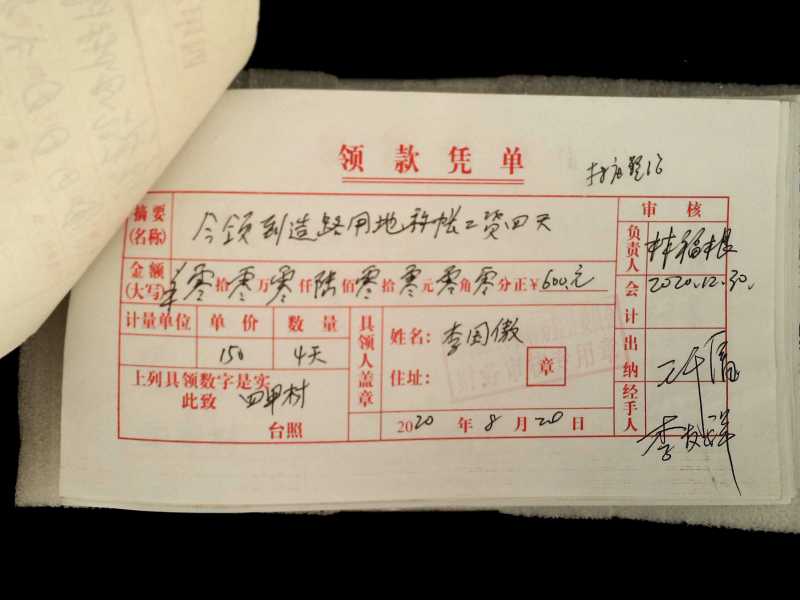 领款凭单
摘要(名称) 今领到造路用地 工资四天
审核
负责人 林福根
2020.12.30.
金额(大写) 零拾零万零仟陆佰零拾零元零角零分正¥600元
会计
计量单位 单价 数量
150 4天
具领人盖章
姓名: 李国傲
住址:
章
出纳
上列具领数字是实
此致 四甲村
台照
2020年8月20日
经手人